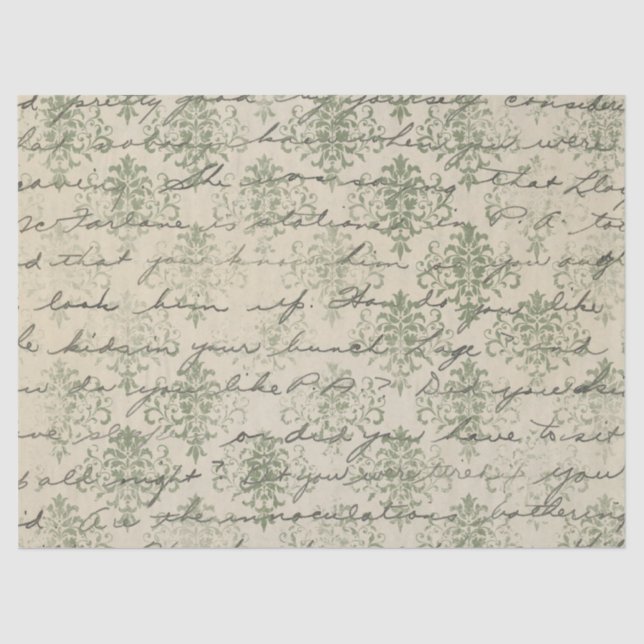 d pretty good by yourself considere
hat nobody knew when you were
eaving. She was saying that Lloy
McFarlane is stationed in P.A. too
d that you know him so you ough
look him up. How do you like
e kids in your bunch Lage? and
w do you like P.A? Did you
ave or did you have to sit
p all night? Bet you were tired you
id. Are the innoculations bothering